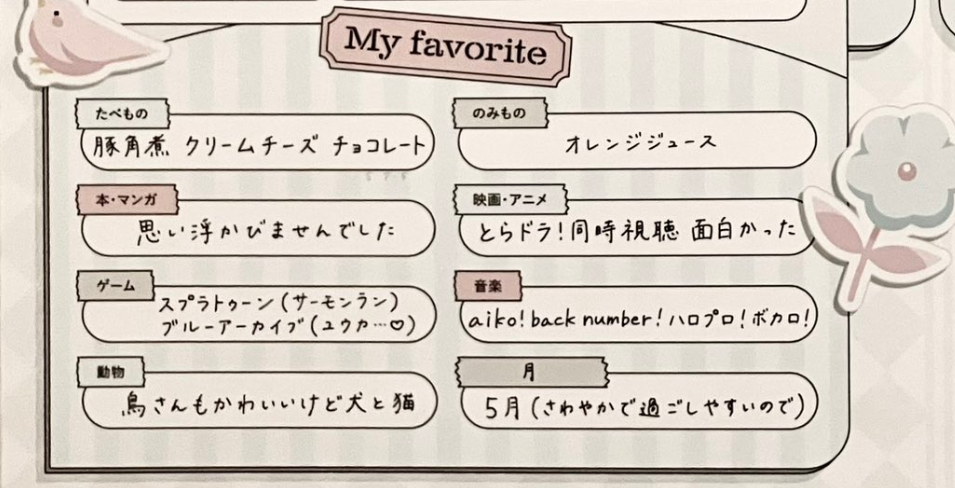 My favorite
たべもの
豚角煮 クリームチーズ チョコレート
のみもの
オレンジジュース
本・マンガ
思い浮かびませんでした
映画・アニメ
とらドラ!同時視聴 面白かった
ゲーム
スプラトゥーン(サーモンラン)
ブルーアーカイブ(ユウカ…♡)
音楽
aiko! back number! ハロプロ! ボカロ!
動物
鳥さんもかわいいけど犬と猫
月
5月(さわやかで過ごしやすいので)